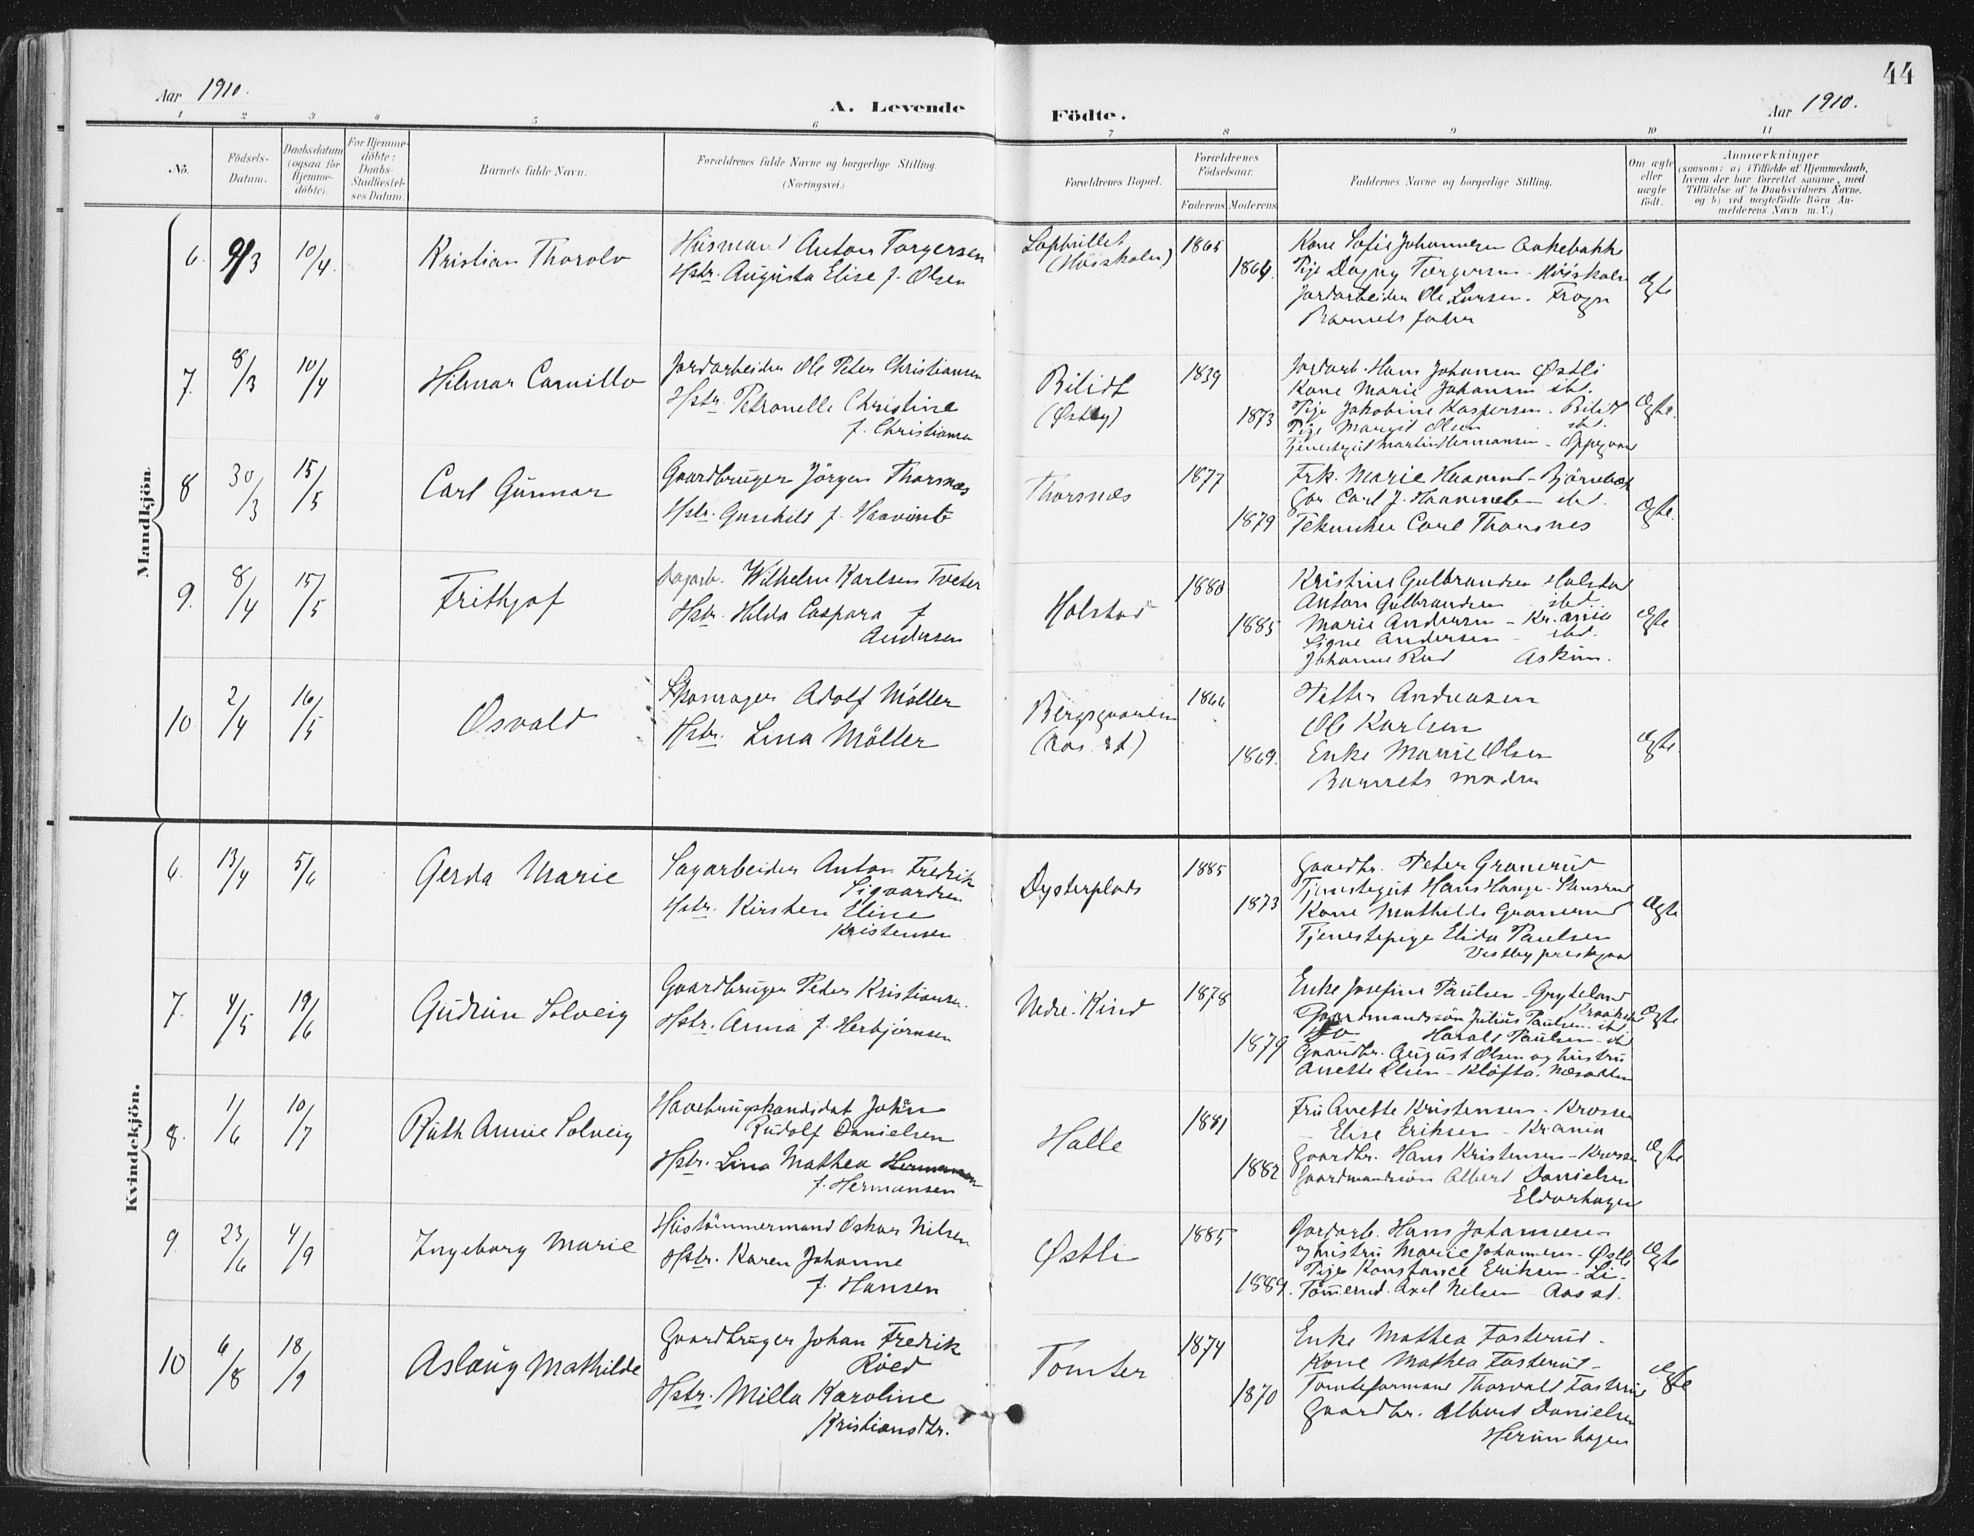 Aar 1910.
A. Levende
Födte.
Aar 1910.
44
1 2 3 4 5 6 7 8 9 10 11
No.
Födsels-
Datum.
Daabsdatum
(ogsaa for
Hjemme-
döbte).
For Hjemme-
döbte:
Daabs-
Stadfæstel-
ses Datum.
Barnets fulde Navn.
Forældrenes fulde Navne og borgerlige Stilling.
(Næringsvei.)
Forældrenes Bopæl.
Forældrenes
Födselsaar.
Faderens Moderens
Faddernes Navne og borgerlige Stilling.
Om ægte
eller
uægte
födt.
Anmærkninger
(saasom: a) i Tilfælde af Hjemmedaab,
hvem der har forrettet samme, med
Tilföielse af to Daabsvidners Navne,
og b) ved uægtefödte Börn An-
melderens Navn m. V.)
Mandkjön.
6. 9/3 10/4. Kristian Thorolv
Husmand Anton Torgersen
Hstr. Augusta Elise f. Olsen
(Høiskolen)
1865
1864.
Kone Sofie Johannesen Aakebakke
Pige Dagny Torgersen - Høiskolen
Jordarbeider Ole Larsen. Frogn
Barnets fader
Ægte
7. 8/3 10/4 Hilmar Camillo
Jordarbeider Ole Peter Christiansen
Hstr. Petronelle Christine
f. Christiansen
Bilidt
(Østby)
1839
1873
Jordarb. Hans Johansen Østli
Kone Marie Johansen ibd.
Pige Jakobine Kaspersen. Bilidt
Pige Margit Olsen ibd.
Tjenestegut Martin Hermansen - Oppegaard
Ægte.
8 30/3 15/5 Carl Gunnar
Gaardbruger Jörgen Thorsnæs
Hstr. Gunhild f.
Thorsnæs
1877
1879
Frk. Marie
Gbr. Carl J. ibd.
Tekniker Carl Thorsnes
Ægte.
9. 8/4 15/5 Frithjof
Dagarb. Wilhelm Karlsen Tveter
Hstr. Hilda Caspara f.
Andersen
Holstad
1880
1885
Kristine Gulbrandsen Holstad
Anton Gulbrandsen ibd.
Marie Andersen - Kr.ania
Signe Andersen - ibd.
Johanne Rud Askim.
Ægte
10. 2/4 16/5 Osvald
Skomager Adolf Möller
Hstr. Lina Möller
Bergsgaarden
(Aas. st)
1866
1869.
Petter Andreasen
Ole Karlsen
Enke Marie Olsen
Barnets moder
Ægte.
Kvindekjön.
6. 13/4 5/6 Gerda Marie
Sagarbeider Anton Fredrik
Sigvardsen
Hstr. Kirsten Eline
Kristensen
Dysterplads
1885
1873
Gaardbr. Peter Granerud
Tjenestegut Hans Hauge.
Kone Mathilde Granerud
Tjenestepige Elida Paulsen
Vestby prestegaard
Ægte
7. 4/5 19/6 Gudrun Solveig
Gaardbruger Peder Kristiansen.
Hstr. Anna f. Herbjørnsen
Nedre. Kind
1878
1879
Enke Josefine Paulsen - Grydeland
Kraakstad
Gaardmandssøn Julius Paulsen. ibd
Do Harald Paulsen ibd
Gaardbr. August Olsen og hustru
Anette Olsen - Kløfta. Næsodden
Ægte
8. 1/6 10/7 Ruth Annie Solveig
Havebrugskandidat Johan
Rudolf Danielsen
Hstr. Lina Mathea Hermansen
f. Hermansen
Holle
1881
1882
Fru Anette Kristensen - Krosser
- Elise Eriksen - Kr.ania
Gaardbr. Hans Kristensen - Krosser
Gaardmandssøn Albert Danielsen
Eldorhagen
Ægte
9. 23/6 4/9 Ingeborg Marie
Hustömmermand Oskar Nilsen
Hstr. Karen Johanne
f. Hansen
Østli
1885
1889.
Jordarb. Hans Johannesen
og hustru Marie Johannesen - Østli
Pige Konstance Eriksen - Li -
Tömmermd. Axel Nilsen Aas st.
Ægte
10 6/8 18/9 Aslaug Mathilde
Gaardbruger Johan Fredrik
Røed
Hstr. Milla Karoline
Kristiansdtr.
Tomter
1874
1870
Enke Mathea Fosterud -
Kone Mathea Fosterud -
Tomteformand Thorvald Fosterud
Gaardbr. Albert Danielsen
Ægte